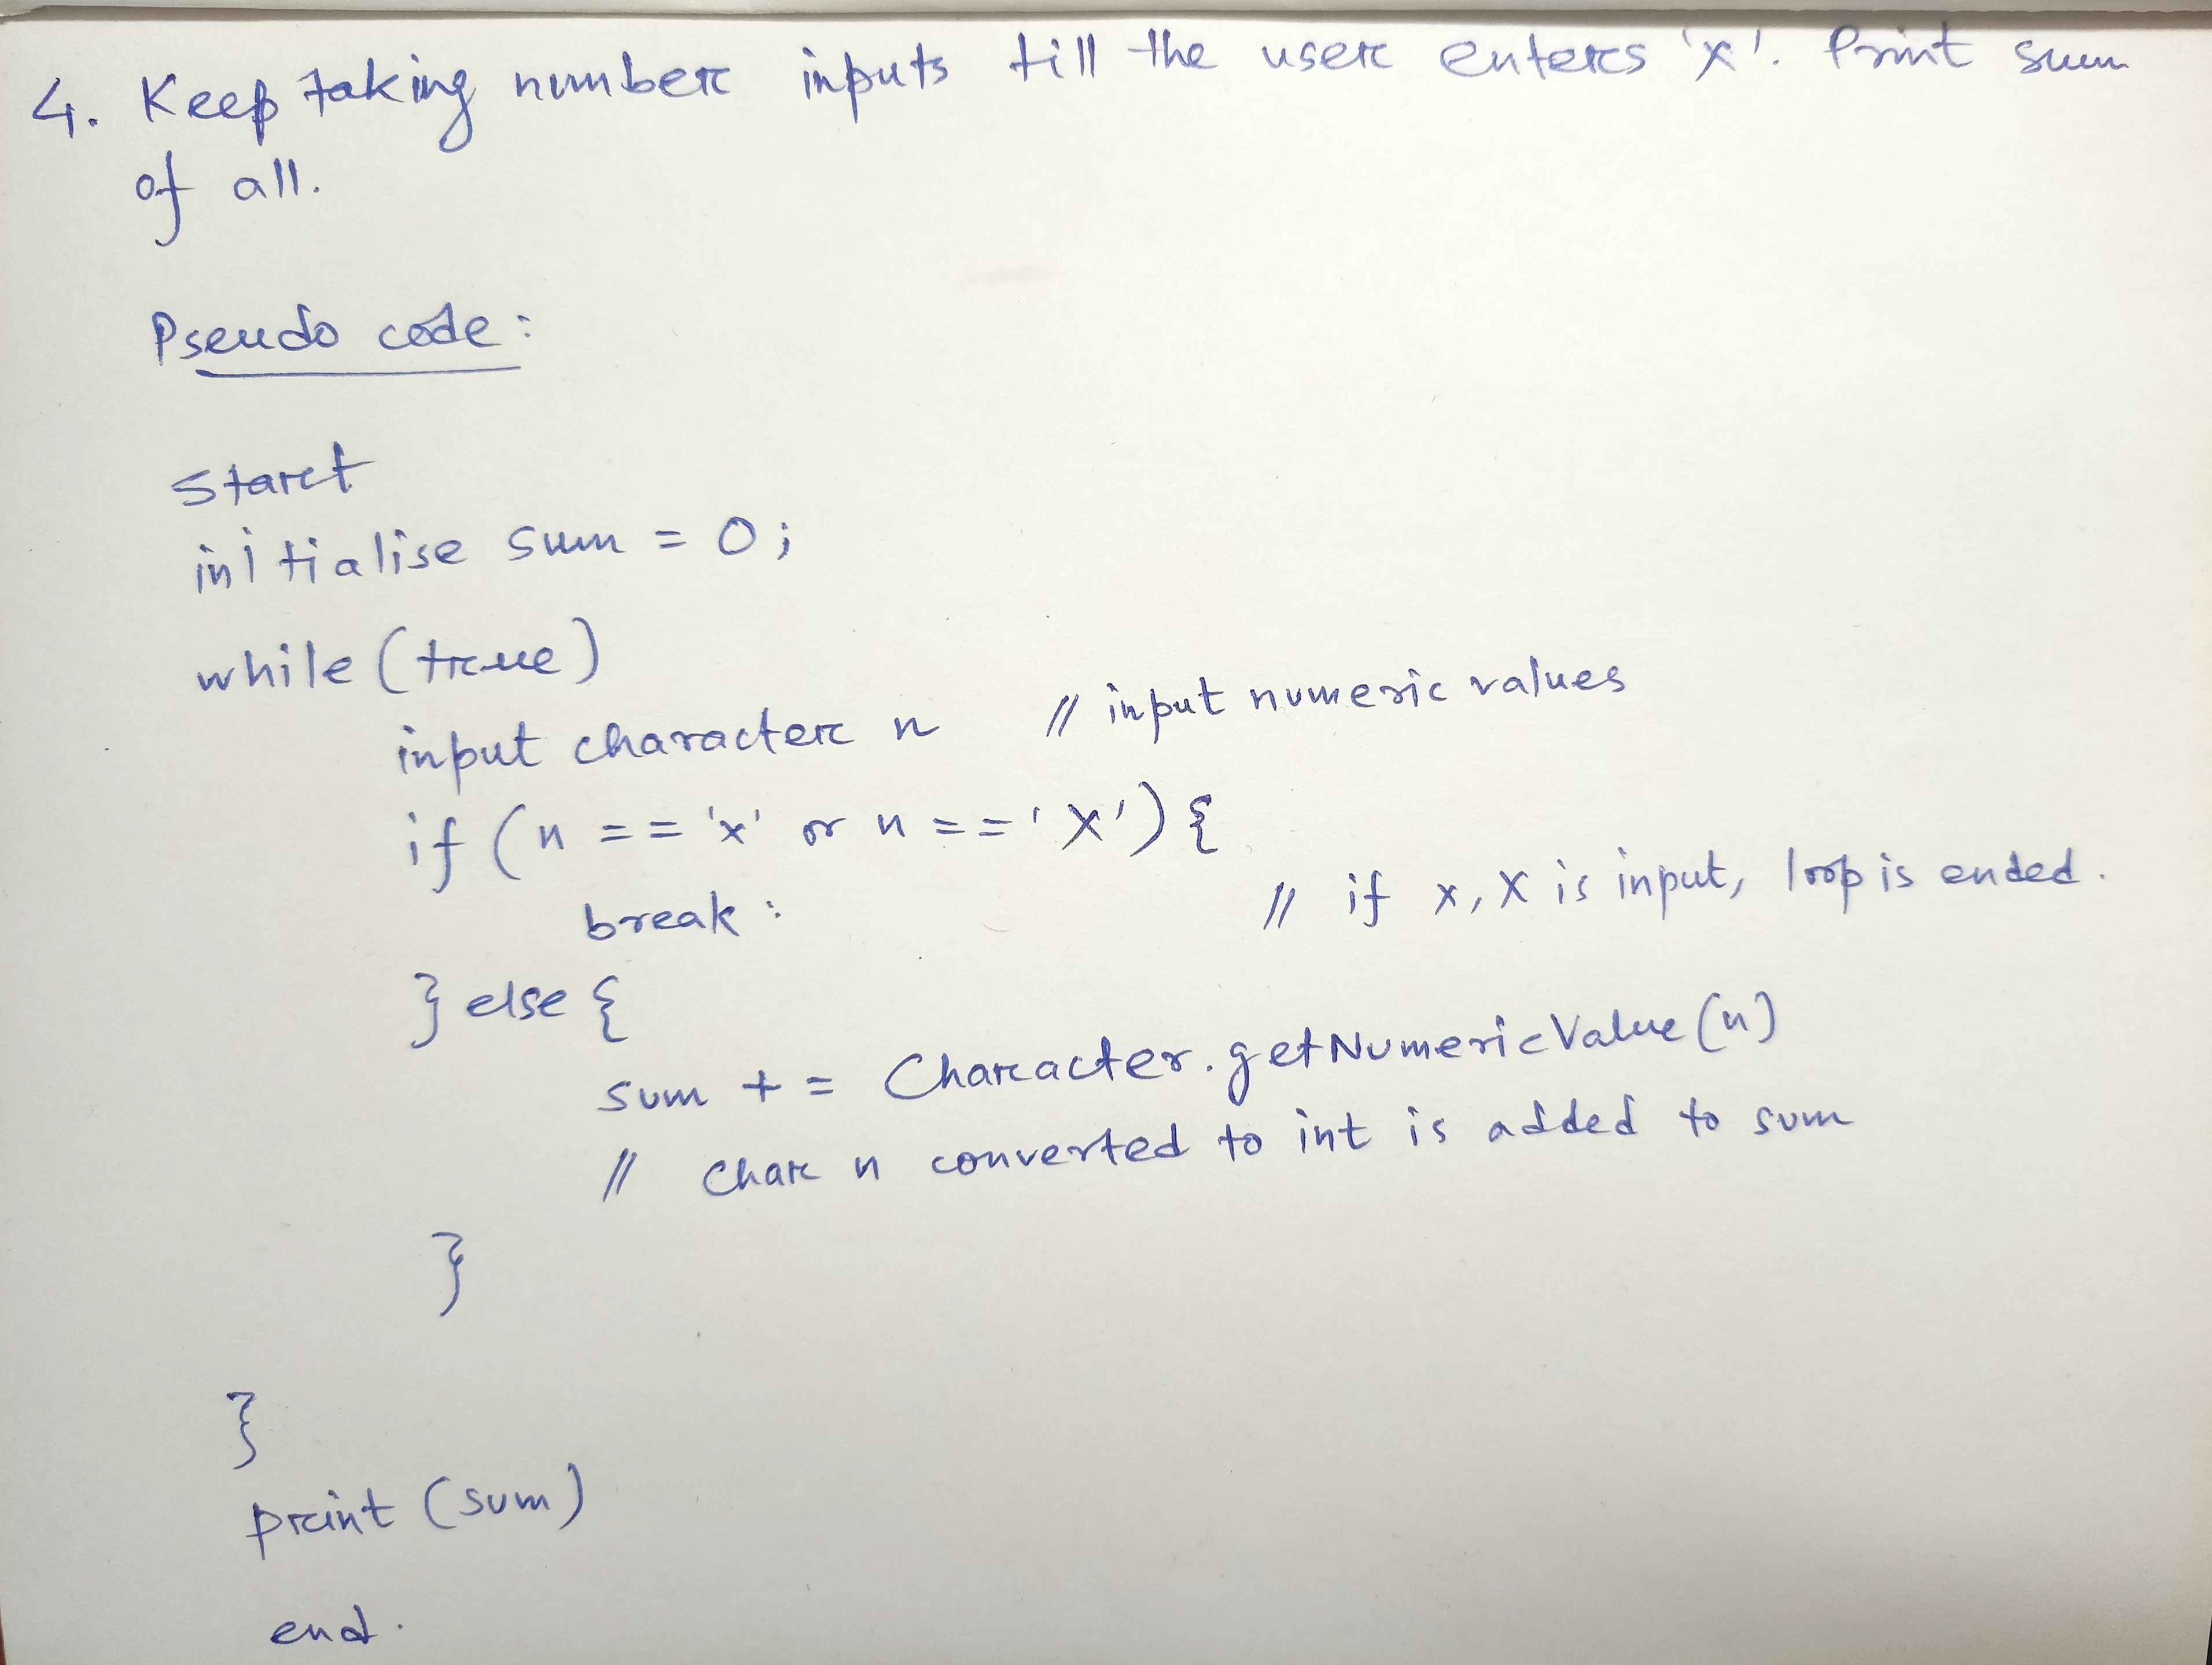 4. Keep taking number inputs till the user enters 'x'. Print sum
of all.
Pseudo code:
Start
initialise sum = 0;
while (true)
input character n // input numeric values
if (n == 'x' or n == 'X') {
break; // if x, X is input, loop is ended.
} else {
sum += Character.getNumericValue(n)
// Char n converted to int is added to sum
}
}
print (sum)
end.